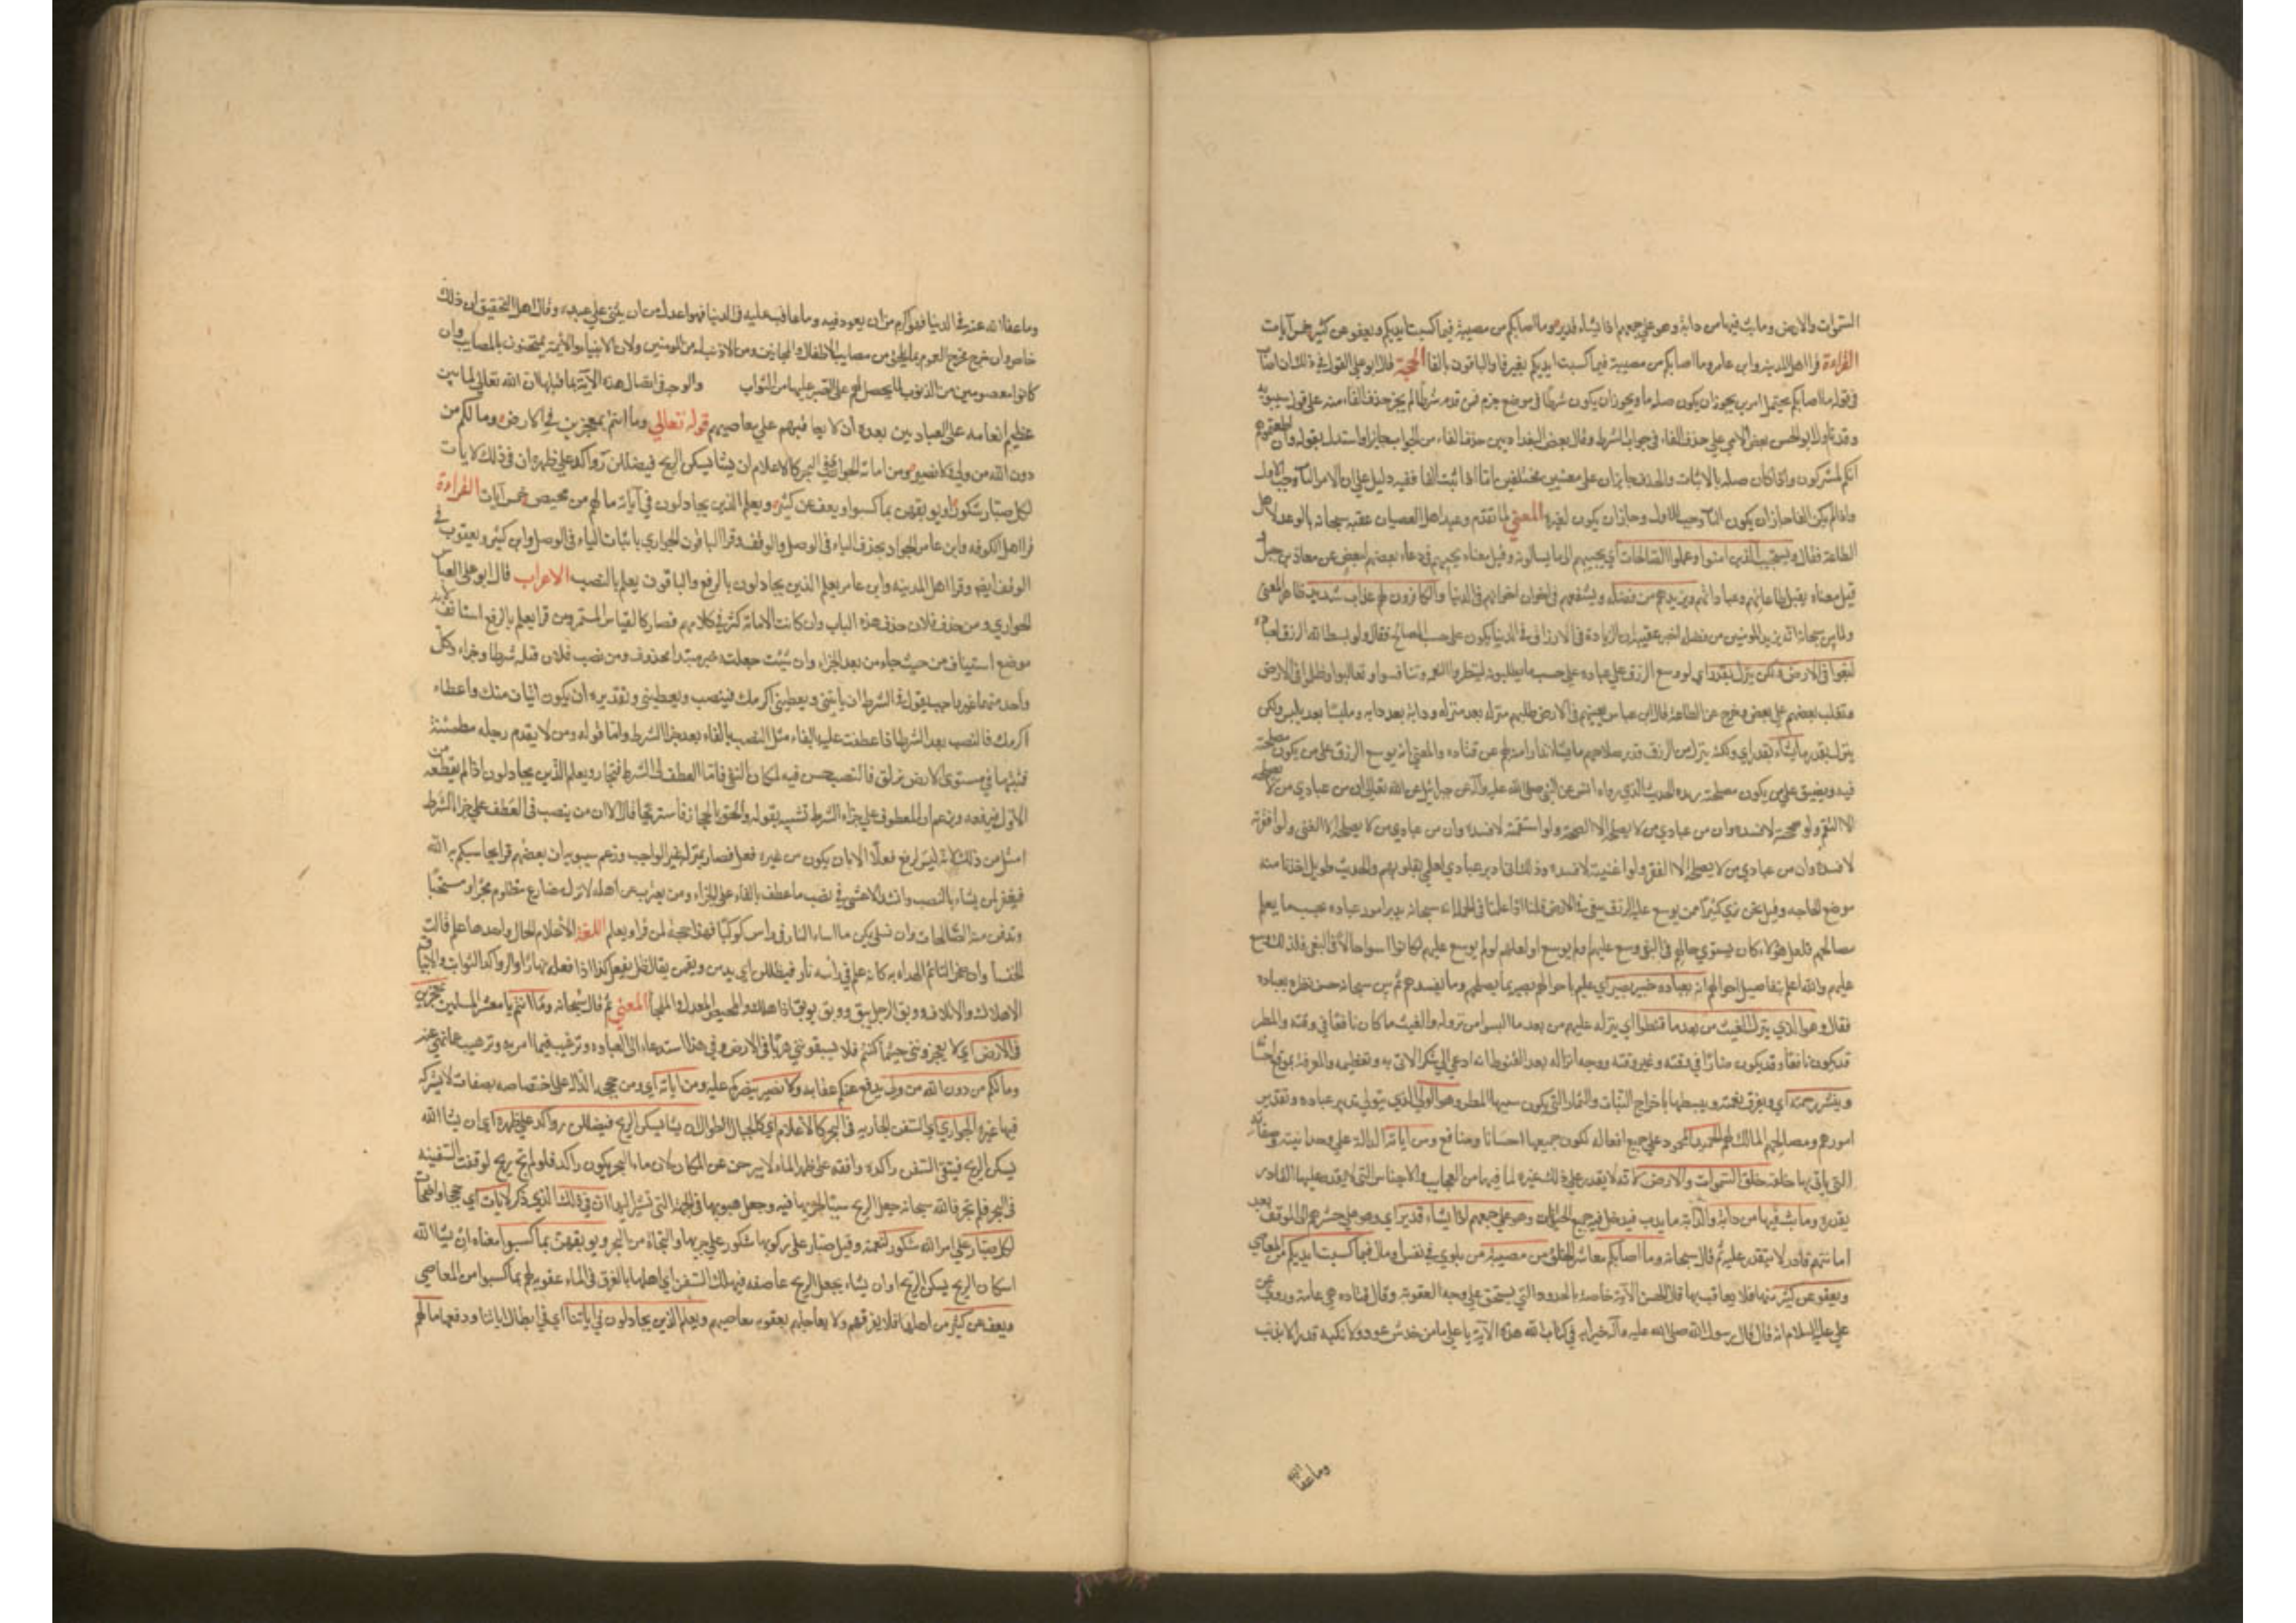 السموات والارض وما بث فيهما من دابة وهو على جمعهم اذا يشاء قدير وما اصابكم من مصيبة فبما كسبت ايديكم ويعفو عن كثير خمس آيات
القراءة قرا اهل المدينة وابن عامر وما اصابكم من مصيبة فبما كسبت ايديكم بغير فا والباقون بالفا الحجة قال ابو علي القول في ذلك ان اصاب
في قوله ما اصابكم يحتمل امرين يجوز ان يكون صلة ما ويجوز ان يكون شرطا في موضع جزم فمن قدره شرطا لم يجز حذف الفاء منه على قول سيبويه
وقد تاوله ابو الحسن بعض الآي على حذف الفاء في جواب الشرط وقال بعض البغداديين حذف الفاء من الجواب جايز واستدل بقوله وان اطعتموهم
انكم لمشركون واذا كان صلة فالاثبات والحذف جايزان على معنيين مختلفين اما اذا اثبت الفا ففيه دليل على ان الامر الثاني وجب بالاول
واذا لم يكن الفا جاز ان يكون الثاني وجب للاول وجاز ان يكون لغيره المعنى لما تقدم وعيد اهل العصيان عقبه سبحانه بالوعد لاهل
الطاعة فقال ويستجيب الذين آمنوا وعملوا الصالحات اي يجيبهم الى ما يسألونه وقيل معناه يجيبهم في دعاء بعضهم لبعض عن معاذ بن جبل
قيل معناه يقبل طاعاتهم وعباداتهم ويزيدهم من فضله ويشفعهم في اخوان اخوانهم في الدنيا والكافرون لهم عذاب شديد ظاهر المعنى
ولما بين سبحانه انه يزيد المومنين من فضله اخبر عقيبه ان الزيادة في الارزاق في الدنيا يكون على حسب المصالح فقال ولو بسط الله الرزق لعباده
لبغوا في الارض ولكن ينزل بقدر اي لو وسع الرزق على عباده على حسب ما يطلبونه لبطروا النعمة وتنافسوا وتغالبوا وظلموا في الارض
وتغلب بعضهم على بعض وخرج عن الطاعة قال ابن عباس بغيهم في الارض طلبهم منزلة بعد منزلة ودابة بعد دابة وملبسا بعد ملبس ولكن
ينزل بقدر ما يشاء بقدر اي ولكنه ينزل من الرزق قدر صلاحهم ما يشاء نظرا منه لهم عن قتادة والمعنى انه يوسع الرزق على من يكون مصلحته
فيه ويضيق على من يكون مصلحته يريده الحديث الذي رواه انس عن النبي صلى الله عليه وآله عن جبرائيل عن الله تعالى ان من عبادي من لا يصلحه
الا السقم ولو صححته لافسده وان من عبادي من لا يصلحه الا الصحة ولو اسقمته لافسده وان من عبادي من لا يصلحه الا الغنى ولو افقرته
لافسده وان من عبادي من لا يصلحه الا الفقر ولو اغنيته لافسده وذلك اني ادبر عبادي لعلمي بقلوبهم والحديث طويل اخذنا منه
موضع الحاجة وقيل نحن نرى كثيرا ممن يوسع عليه الرزق يبغي في الارض قلنا اذا علمنا في الجملة انه سبحانه يدبر امور عباده بحسب ما يعلم
مصالحهم فلعل هؤلاء كان يستوي حالهم في البغي وسع عليهم او لم يوسع او لعلهم لو لم يوسع عليهم لكانوا اسوا حالا في البغي فلذلك وسع
عليهم والله اعلم بتفاصيل احوالهم انه بعباده خبير بصير اي عليم باحوالهم بصير بما يصلحهم وما يفسدهم ثم بين سبحانه حسن نظره بعباده
فقال وهو الذي ينزل الغيث من بعد ما قنطوا اي ينزله عليهم من بعد ما ايسوا من نزوله والغيث ما كان نافعا في وقته والمطر
قد يكون نافعا وقد يكون ضارا في وقته وغير وقته ووجه انزاله بعد القنوط انه ادعى الى شكر الآتي به وتعظيمه والمعرفة بموقع احسانه
وينشر رحمته اي ويفرق نعمته ويبسطها باخراج النبات والثمار التي يكون سببها المطر وهو الولي الذي يتولى تدبير عباده وتقدير
امورهم ومصالحهم المالك لهم الحميد المحمود على جميع افعاله لكون جميعها احسانا ومنافع ومن آياته الدالة على وحدانيته وصفاته
التي باين بها خلقه خلق السموات والارض لانه لا يقدر على ذلك غيره لما فيهما من العجايب والاجناس التي لا يقدر عليها القادر
بقدرة وما بث فيهما من دابة والدابة ما يدب فيدخل فيه جميع الحيوانات وهو على جمعهم اذا يشاء قدير اي وهو على حشرهم الى الموقف بعد
اماتتهم قادر لا يتعذر عليه ثم قال سبحانه وما اصابكم معاشر الخلق من مصيبة من بلوى في نفس او مال فبما كسبت ايديكم من المعاصي
ويعفو عن كثير منها فلا يعاقب بها قال الحسن الآية خاصة بالحدود التي يستحق على وجه العقوبة وقال قتادة هي عامة وروي عن
علي عليه السلام انه قال قال رسول الله صلى الله عليه وآله خير آية في كتاب الله هذه الآية يا علي ما من خدش عود ولا نكبة قدم الا بذنب
وما عفا الله
وما عفا الله عنه في الدنيا فهو اكرم من ان يعود فيه وما عاقب عليه في الدنيا فهو اعدل من ان يثني على عبده وقال اهل التحقيق ان ذلك
خاص وان خرج مخرج العموم لما يلحق من مصايب الاطفال والمجانين ومن لا ذنب له من المومنين ولان الانبياء والائمة يمتحنون بالمصايب وان
كانوا معصومين من الذنوب لما يحصل لهم على الصبر عليها من الثواب والوجه في اتصال هذه الآية بما قبلها ان الله تعالى لما بين
عظيم انعامه على العباد بين بعده ان لا يعاقبهم على معاصيهم قوله تعالى وما انتم بمعجزين في الارض وما لكم من
دون الله من ولي ولا نصير ومن آياته الجوار في البحر كالاعلام ان يشا يسكن الريح فيظللن رواكد على ظهره ان في ذلك لآيات
لكل صبار شكور او يوبقهن بما كسبوا ويعف عن كثير ويعلم الذين يجادلون في آياتنا ما لهم من محيص خمس آيات القراءة
قرا اهل الكوفه وابن عامر الجوار بحذف الياء في الوصل والوقف وقرا الباقون الجواري باثبات الياء في الوصل وابن كثير ويعقوب في
الوقف ايضا وقرا اهل المدينه وابن عامر يعلم الذين يجادلون بالرفع والباقون يعلم بالنصب الاعراب قال ابو علي القياس
الجواري ومن حذف فلان حذف هذه الياء وان كانت لاما قد كثر في كلامهم فصار كالقياس المستمر ومن قرا يعلم بالرفع استانف لانه
موضع استيناف من حيث جاء من بعد الجزاء وان شئت جعلته خبر مبتدا محذوف ومن نصب فلان قبله شرطا وجزاء وكل
واحد منهما غير واجب يقول في الشرط ان ياتني ويعطيني اكرمك فينصب ويعطيني وتقديره ان يكون اتيان منك واعطاء
اكرمك فالنصب بعد الشرط اذا عطفت عليه بالفاء مثل النصب بالفاء بعد جزا الشرط واما قوله ومن لا يقدم رجله مطمئنة
فيثبتها في مستوى الارض تزلق فالنصب حسن فيه لمكان النفي فاما العطف على الشرط فيختار ويعلم الذين يجادلون اذا لم يقطعه من
الاول فيرفعه
امثل من ذلك لانه ليس يرفع فعلا الا بان يكون من غيره فعل فصار بمنزلة غير الواجب وزعم سيبويه ان بعضهم قرا يحاسبكم به الله
فيغفر لمن يشاء بالنصب وانشد للاعشى في نصب ما عطف بالفاء على الجزاء ومن يغترب عن اهله لا يزل يرى مصارع مظلوم مجرا ومسحبا
وتدفن منه الصالحات وان يسئ يكن ما اساء النار في راس كوكبا فهذا حجة لمن قرا ويعلم اللغة الاعلام الجبال واحدها علم قالت
الخنسا وان صخرا لتاتم الهداة به كانه علم في راسه نار فيظللن اي يدمن ويقمن يقال ظل يفعل كذا اذا فعله نهارا والرواكد الثوابت والايباق
الاهلاك والاتلاف ووبق الرجل يبق ووبق يوبق اذا هلك والمحيص المعدل والملجا المعنى ثم قال سبحانه وما انتم يا معشر المسلمين بمعجزين
في الارض اي لا يعجزونني حيثما كنتم فلا يسبقونني هربا في الارض وفي هذا استدعاء الى العباده وترغيب فيما امر به وترهيب عما نهى عنه
وما لكم من دون الله من ولي يدفع عنكم عقابه ولا نصير ينصركم عليه ومن آياته اي ومن حججه الداله على اختصاصه بصفات لا يشركه
فيها غيره الجواري اي السفن الجاريه في البحر كالاعلام اي كالجبال الطوال ان يشا يسكن الريح فيظللن رواكد على ظهره اي ان يشا الله
يسكن الريح فيبقى السفن راكده واقفه على ظهر الماء لا يبرحن عن المكان لان ماء البحر يكون راكدا فلو لم تجئ ريح لوقفت السفينه
في البحر فلم تجر فالله سبحانه جعل الريح سببا لجريها فيه وجعل هبوبها في الجهة التي تسير اليها ان في ذلك الذي ذكر لآيات اي حججا واضحات
لكل صبار على امر الله شكور لنعمته وقيل صبار على ركوبها شكور على جريها والنجاة من البحر او يوبقهن بما كسبوا معناه ان يشا الله
اسكان الريح يسكن الريح او ان يشاء يجعل الريح عاصفه فيهلك السفن اي اهلها بالغرق في الماء عقوبه لهم بما كسبوا من المعاصي
ويعف عن كثير من اهلها فلا يغرقهم ولا يعاجلهم بعقوبه معاصيهم ويعلم الذين يجادلون في آياتنا اي في ابطال آياتنا ودفعها ما لهم